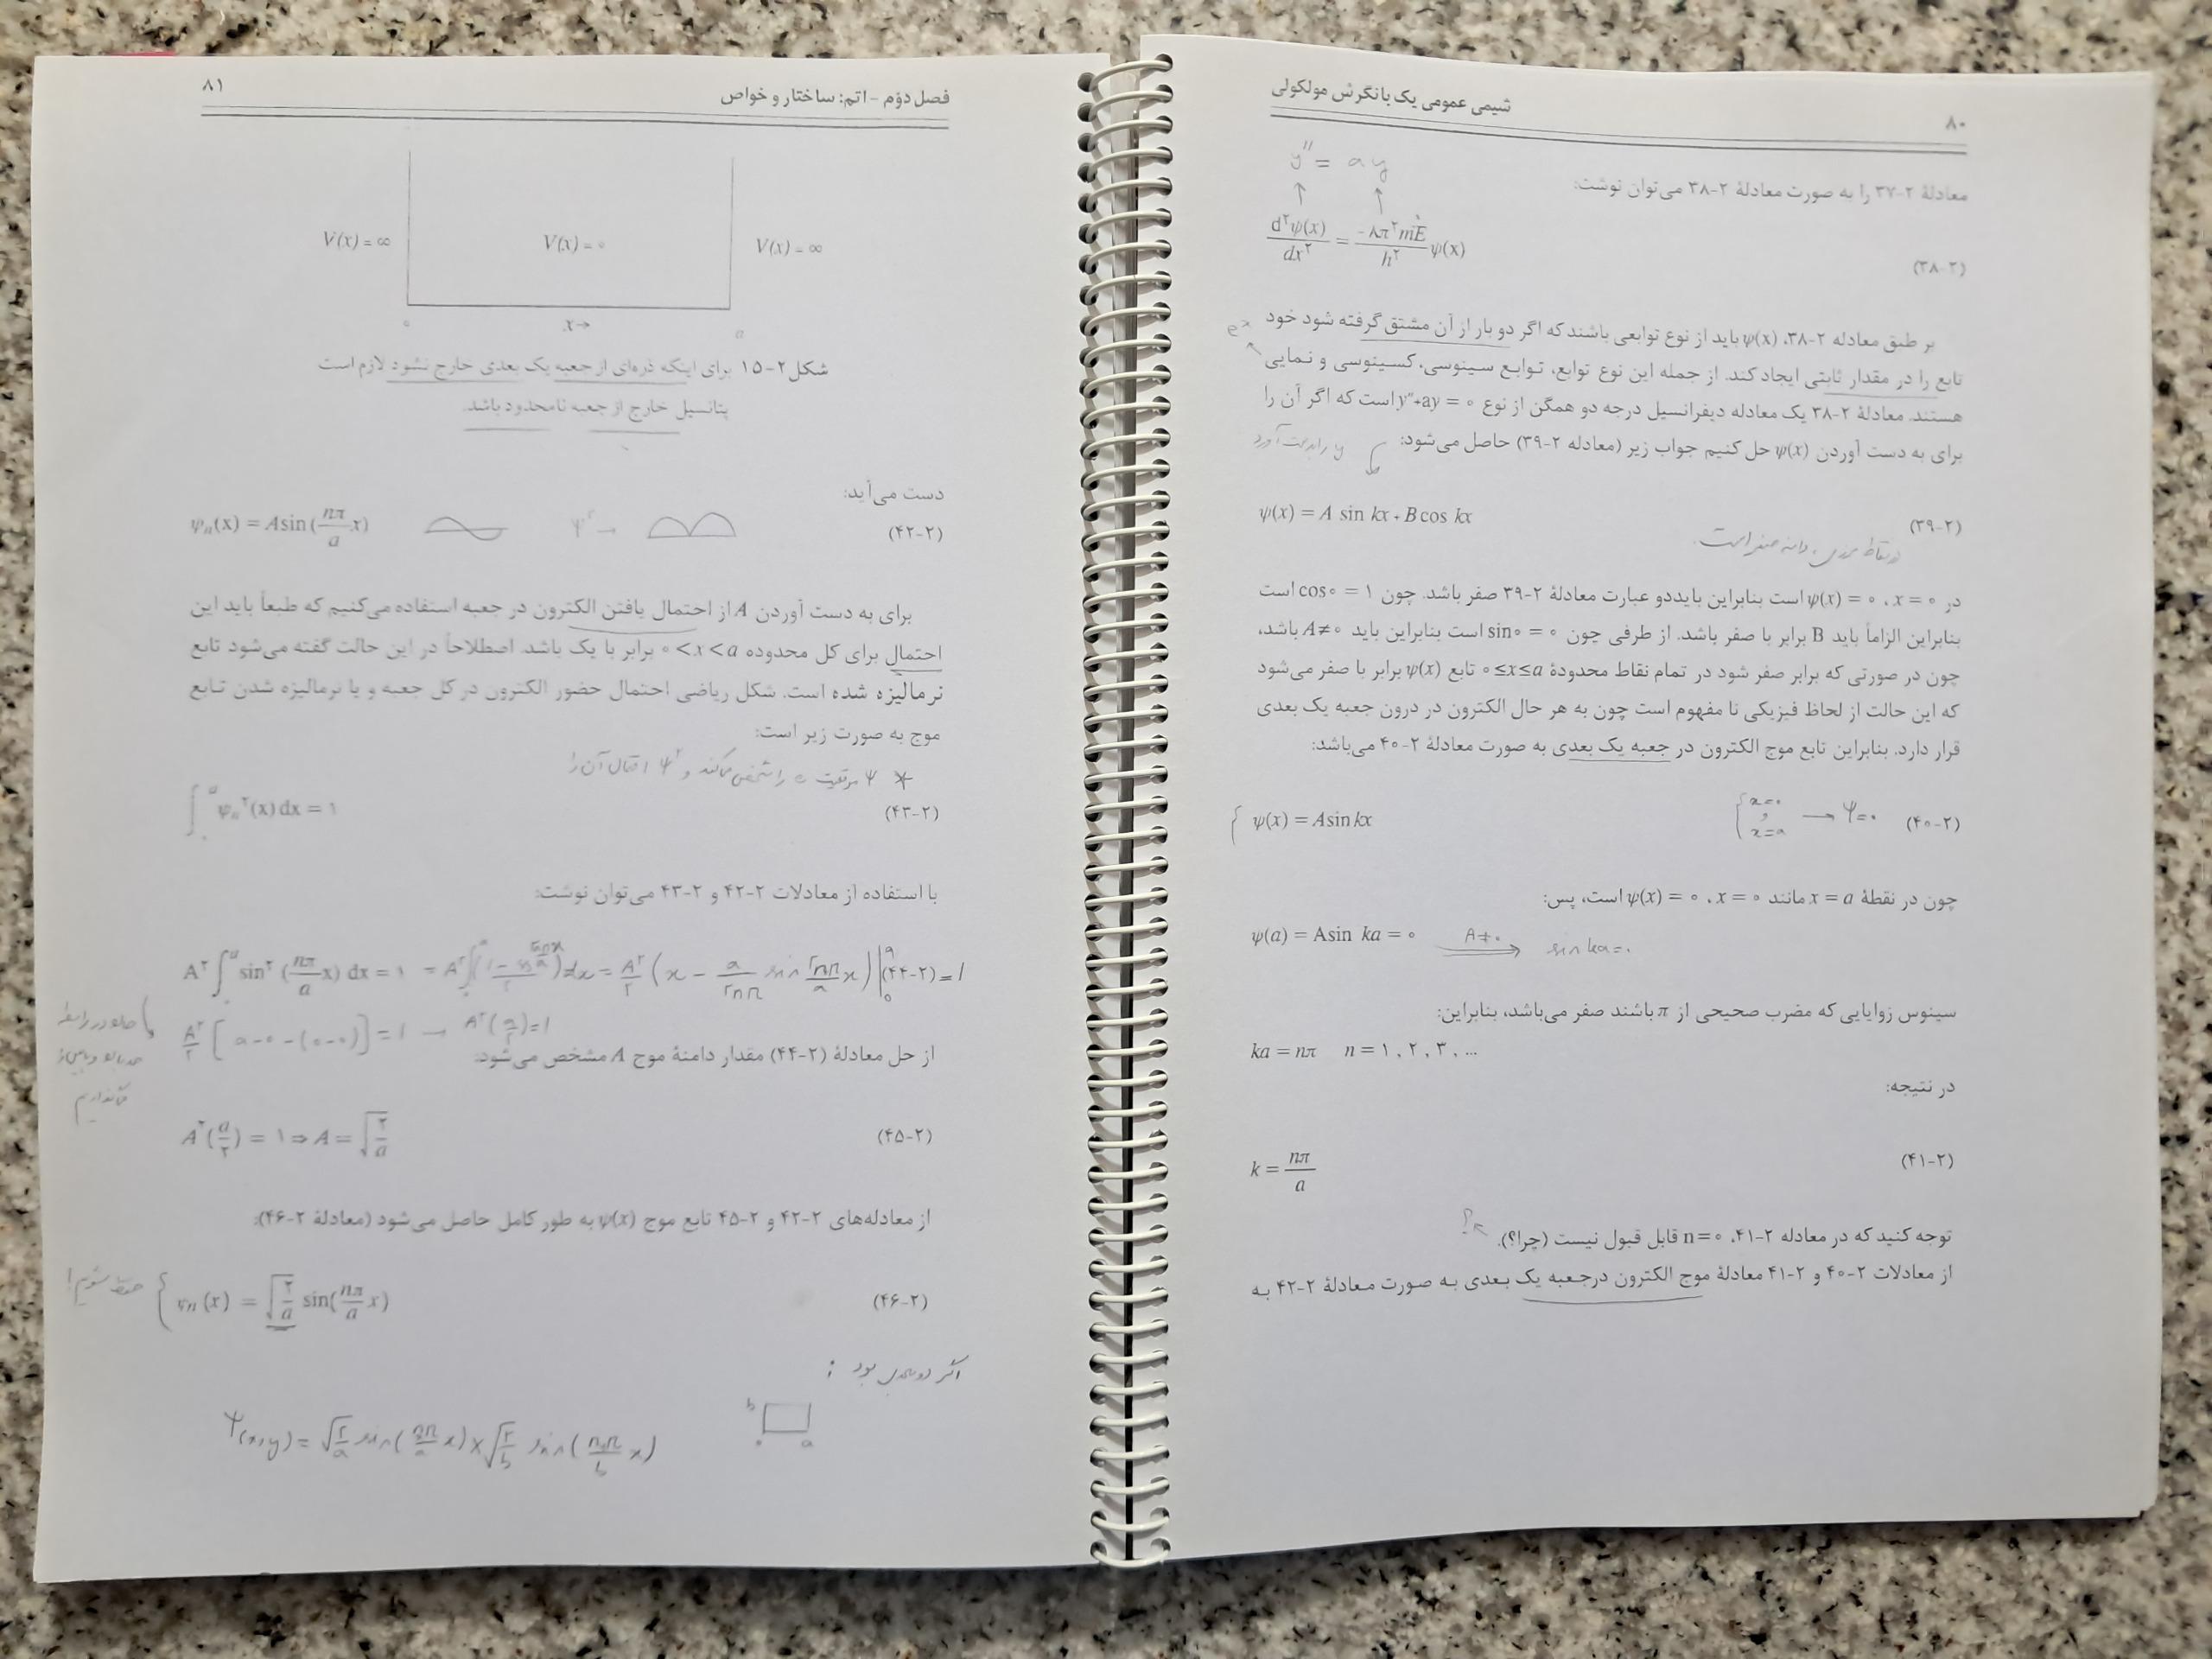 شیمی عمومی یک با نگرش مولکولی
۸۰
معادلهٔ ۲-۳۷ را به صورت معادلهٔ ۲-۳۸ می‌توان نوشت:
y'' = ay
d²ψ(x)/dx² = -۸π²mE/h² ψ(x) (۳۸-۲)
بر طبق معادله ۲-۳۸، ψ(x) باید از نوع توابعی باشند که اگر دو بار از آن مشتق گرفته شود خود
eˣ
تابع را در مقدار ثابتی ایجاد کند. از جمله این نوع توابع، توابع سینوسی، کسینوسی و نمایی
هستند. معادلهٔ ۲-۳۸ یک معادله دیفرانسیل درجه دو همگن از نوع y″+ay = ۰ است که اگر آن را
برای به دست آوردن ψ(x) حل کنیم جواب زیر (معادله ۲-۳۹) حاصل می‌شود:
y را بدست آورد
ψ(x) = A sin kx + B cos kx (۳۹-۲)
در نقاط مرزی، دامنه صفر است.
در x = ۰، ψ(x) = ۰ است بنابراین بایددو عبارت معادلهٔ ۲-۳۹ صفر باشد. چون cos۰ = ۱ است
بنابراین الزاماً باید B برابر با صفر باشد. از طرفی چون sin۰ = ۰ است بنابراین باید A≠۰ باشد،
چون در صورتی که برابر صفر شود در تمام نقاط محدودهٔ ۰≤x≤a تابع ψ(x) برابر با صفر می‌شود
که این حالت از لحاظ فیزیکی نا مفهوم است چون به هر حال الکترون در درون جعبه یک بعدی
قرار دارد. بنابراین تابع موج الکترون در جعبه یک بعدی به صورت معادلهٔ ۲-۴۰ می‌باشد:
ψ(x) = A sin kx (۴۰-۲)
x=۰ , x=a → ψ=۰
چون در نقطهٔ x = a مانند x = ۰، ψ(x) = ۰ است، پس:
ψ(a) = Asin ka = ۰ A≠۰ → sin ka=۰
سینوس زوایایی که مضرب صحیحی از π باشند صفر می‌باشد، بنابراین:
ka = nπ n = ۱ , ۲ , ۳ , ...
در نتیجه:
k = nπ/a (۴۱-۲)
توجه کنید که در معادله ۲-۴۱، n=۰ قابل قبول نیست (چرا؟).
؟
از معادلات ۲-۴۰ و ۲-۴۱ معادلهٔ موج الکترون درجعبه یک بعدی به صورت معادلهٔ ۲-۴۲ به
فصل دوّم - اتم: ساختار و خواص
۸۱
V(x) = ∞ V(x) = ۰ V(x) = ∞
۰ x→ a
شکل ۲-۱۵ برای اینکه ذره‌ای از جعبه یک بعدی خارج نشود لازم است
پتانسیل خارج از جعبه نامحدود باشد.
دست می‌آید:
ψₙ(x) = A sin(nπ/a x) ψ² → (۴۲-۲)
برای به دست آوردن A از احتمال یافتن الکترون در جعبه استفاده می‌کنیم که طبعاً باید این
احتمال برای کل محدوده ۰<x<a برابر با یک باشد. اصطلاحاً در این حالت گفته می‌شود تابع
نرمالیزه شده است. شکل ریاضی احتمال حضور الکترون در کل جعبه و یا نرمالیزه شدن تابع
موج به صورت زیر است:
* ψ موقعیت e را مشخص میکند و ψ² احتمال آن را
∫₀ᵃ ψₙ²(x) dx = ۱ (۴۳-۲)
با استفاده از معادلات ۲-۴۲ و ۲-۴۳ می‌توان نوشت:
A² ∫₀ᵃ sin² (nπ/a x) dx = ۱ (۴۴-۲)
= A² ∫₀ᵃ (1 - cos 2nπx/a / ۲) dx = A²/۲ (x - a/۲nπ sin ۲nπ/a x) |₀ᵃ = 1
A²/۲ [a-۰-(۰-۰)] = 1 → A²(a/۲)=1
از حل معادلهٔ (۲-۴۴) مقدار دامنهٔ موج A مشخص می‌شود:
A²(a/۲) = ۱ ⇒ A = √(۲/a) (۴۵-۲)
از معادله‌های ۲-۴۲ و ۲-۴۵ تابع موج ψ(x) به طور کامل حاصل می‌شود (معادلهٔ ۲-۴۶):
ψₙ(x) = √(۲/a) sin(nπ/a x) (۴۶-۲)
حفظ شویم!
اگر دوبعدی بود :
b
۰ a
ψ(x,y) = √(۲/a) sin(nπ/a x) × √(۲/b) sin(nπ/b x)